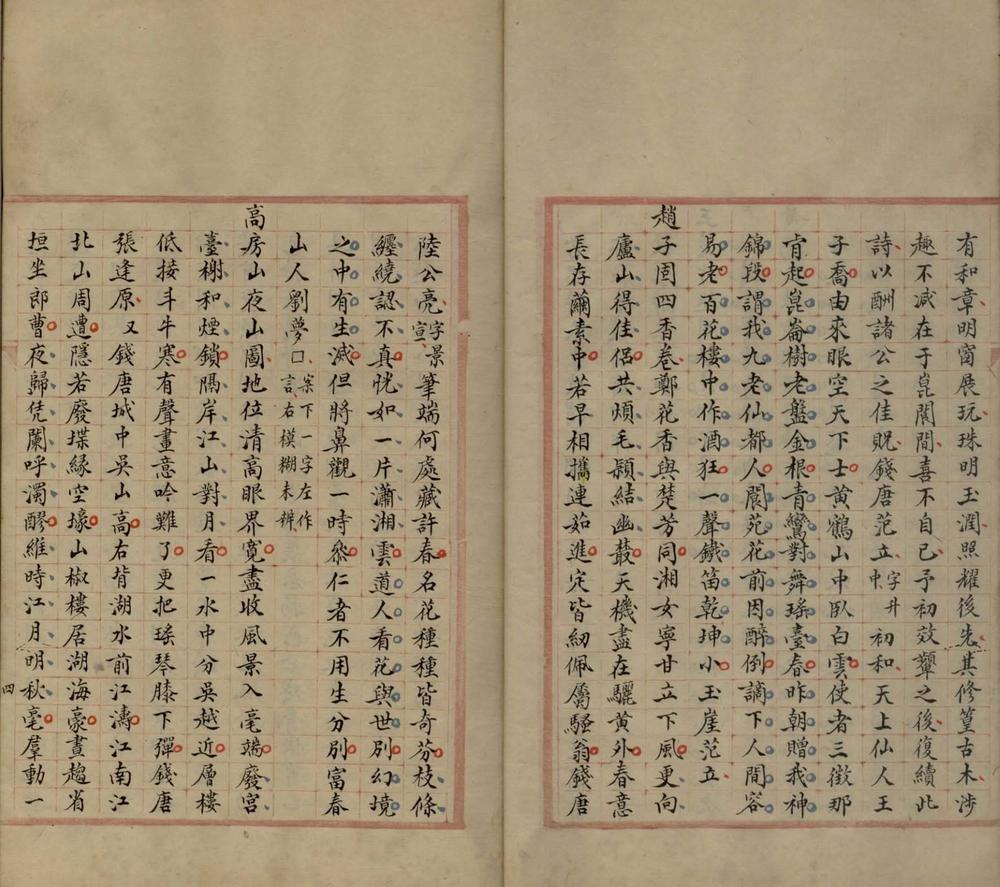 有和章明窗展玩珠明玉潤照耀後先其修篁古木涉
趣不減在于崑閬間喜不自已予初效顰之後復續此
詩以酬諸公之佳貺錢唐范立字升中初和天上仙人王
子喬由來眼空天下士黃鶴山中臥白雲使者三徵那
肯起崑崙樹老盤金根青鸞對舞瑤臺春昨朝贈我神
錦段謂我九老仙都人閬苑花前因醉倒謫下人間容
易老百花樓中作酒狂一聲鐵笛乾坤小玉崖范立
趙子固四香卷鄭花香與楚芳同湘女寧甘立下風更向
廬山得佳侶共煩毛穎結幽叢天機盡在驪黃外春意
長存繭素中若早相攜連茹進定皆紉佩屬騷翁錢唐
陸公亮字景宣筆端何處藏許春名花種種皆奇芬枝條
纏繞認不真恍如一片瀟湘雲道人看花與世別幻境
之中有生滅但將鼻觀一時叅仁者不用生分別富春
山人劉夢□案下一字左作言右模糊未辨
高房山夜山圖地位清高眼界寬盡收風景入毫端廢宮
臺榭和煙鎖隔岸江山對月看一水中分吳越近層樓
低接斗牛寒有聲畫意吟難了更把瑤琴膝下彈錢唐
張逢原又錢唐城中吳山高右背湖水前江濤江南江
北山周遭隱若廢堞緣空壕山椒樓居湖海豪晝趨省
垣坐郎曹夜歸凭闌呼濁醪維時江月明秋毫羣動一
四